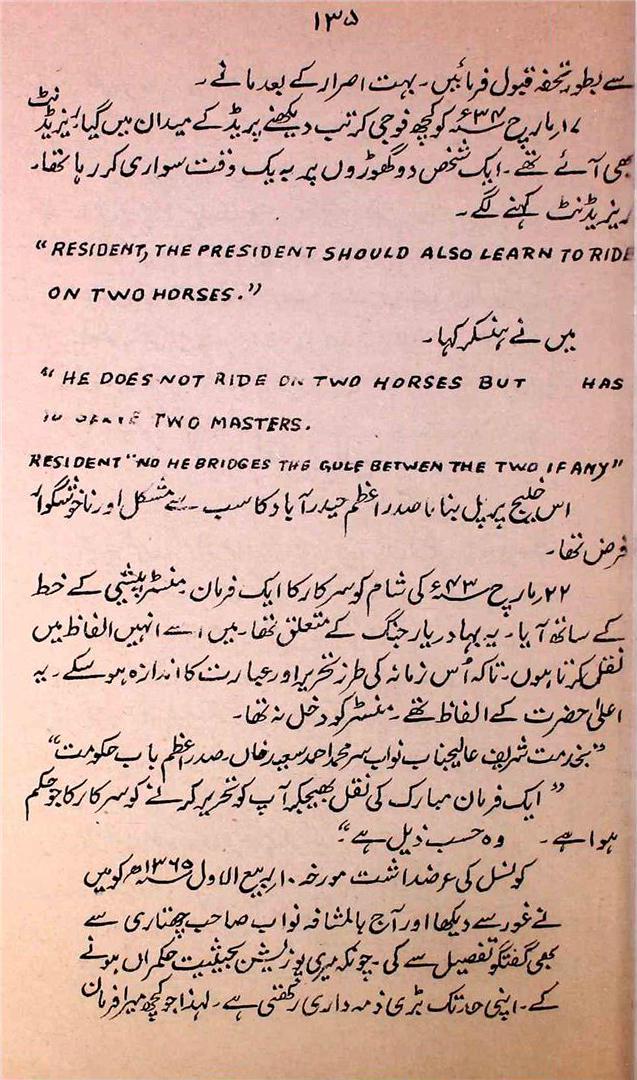 ۱۳۵
سے بطور تحفہ قبول فرمائیں۔ بہت اصرار کے بعد مانے۔
۱۷ مارچ ۳۴ء کو کچھ فوجی کرتب دیکھنے پریڈ کے میدان میں گیا۔ ریزیڈنٹ
بھی آئے تھے۔ ایک شخص دو گھوڑوں پر بہ یک وقت سواری کر رہا تھا۔
ریزیڈنٹ کہنے لگے۔
“RESIDENT, THE PRESIDENT SHOULD ALSO LEARN TO RIDE
ON TWO HORSES.”
میں نے ہنسکر کہا۔
“HE DOES NOT RIDE ON TWO HORSES BUT HAS
TWO MASTERS.
RESIDENT “NO HE BRIDGES THE GULF BETWEN THE TWO IF ANY”
اس خلیج پر پل بنانا صدر اعظم حیدرآباد کا سب سے مشکل اور ناخوشگوار
فرض تھا۔
۲۲ مارچ ۴۳ء کی شام کو سرکار کا ایک فرمان منسٹر پیشی کے خط
کے ساتھ آیا۔ یہ بہادر یار جنگ کے متعلق تھا۔ میں اسے انہیں الفاظ میں
نقل کرتا ہوں۔ تاکہ اُس زمانہ کی طرز تحریر اور عبارت کا اندازہ ہوسکے۔ یہ
اعلیٰ حضرت کے الفاظ تھے۔ منسٹر کو دخل نہ تھا۔
“بخدمت شریف عالیجناب نواب سر محمد احمد سعید خاں۔ صدر اعظم باب حکومت“
“ایک فرمان مبارک کی نقل بھیجکر آپ کو تحریر کرنے کو سرکار کا جو حکم
ہوا ہے۔ وہ حسب ذیل ہے“۔
کونسل کی عرضداشت مورخہ ۱۰ ربیع الاول ۱۳۶۵ھ کو میں
نے غور سے دیکھا اور آج بالمشافہ نواب صاحب چھتاری سے
بھی گفتگو تفصیل سے کی۔ چونکہ میری پوزیشن بحیثیت حکمراں ہونے
کے۔ اپنی حد تک بڑی ذمہ داری رکھتی ہے۔ لہذا جو کچھ میرا فرمان